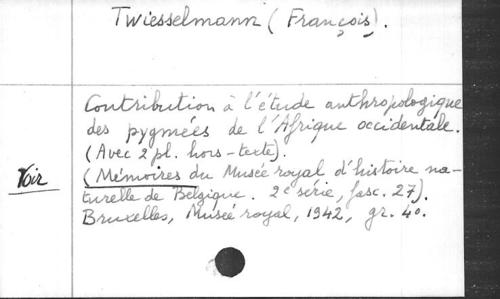 Twiesselmann (François).
Contribution à l'étude anthropologique
des pygmées de l'Afrique occidentale.
(Avec 2 pl. hors-texte).
Voir (Mémoires du Musée royal d'histoire na-
turelle de Belgique. 2e série, fasc. 27).
Bruxelles, Musée royal, 1942, gr. 4o.